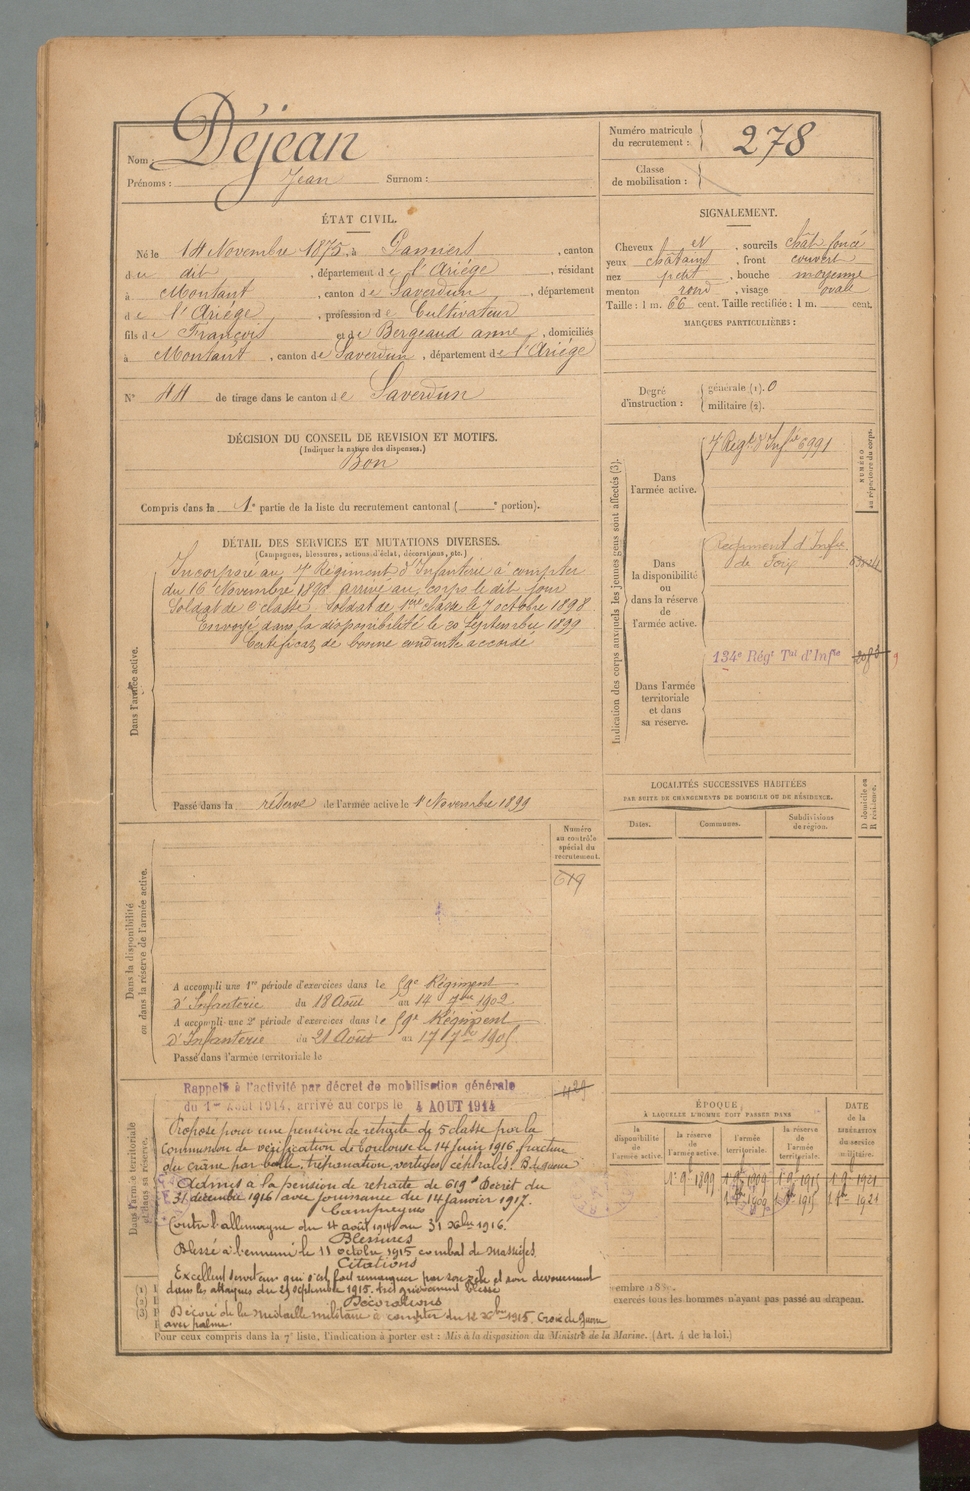 Nom : Déjean
Prénoms : Jean Surnom :
Numéro matricule du recrutement : 278
Classe de mobilisation :
ÉTAT CIVIL.
Né le 14 Novembre 1875, à Pamiers, canton
du dit, département de l'Ariège, résidant
à Montaut, canton de Saverdun, département
de l'Ariège, profession de Cultivateur
fils de François et de Bergeaud anne, domiciliés
à Montaut, canton de Saverdun, département de l'Ariège
N° 44 de tirage dans le canton de Saverdun
SIGNALEMENT.
Cheveux et, sourcils chât. foncé
yeux châtains, front couvert
nez petit, bouche moyenne
menton rond, visage ovale
Taille : 1 m. 66 cent. Taille rectifiée : 1 m. cent.
MARQUES PARTICULIÈRES :
Degré d'instruction :
générale (1). 0
militaire (2).
DÉCISION DU CONSEIL DE REVISION ET MOTIFS.
(Indiquer la nature des dispenses.)
Bon
Compris dans la 1e partie de la liste du recrutement cantonal ( e portion).
DÉTAIL DES SERVICES ET MUTATIONS DIVERSES.
(Campagnes, blessures, actions d'éclat, décorations, etc.)
Dans l'armée active.
Incorporé au 7e Régiment d'Infanterie à compter
du 16 Novembre 1896 arrivé au corps le dit jour
Soldat de 2e classe. Soldat de 1ère classe le 7 octobre 1898
Envoyé dans la disponibilité le 20 Septembre 1899
Certificat de bonne conduite accordé
Passé dans la réserve de l'armée active le 1er Novembre 1899
Indication des corps auxquels les jeunes gens sont affectés (3).
NUMÉRO au répertoire du corps.
Dans l'armée active.
7e Régt d'Infie 6991
Dans la disponibilité ou dans la réserve de l'armée active.
Régiment d'Infie
de Foix
Dans l'armée territoriale et dans sa réserve.
134e Régt Tal d'Infie
LOCALITÉS SUCCESSIVES HABITÉES
PAR SUITE DE CHANGEMENTS DE DOMICILE OU DE RÉSIDENCE.
D domicile ou R résidence.
Dates. Communes. Subdivisions de région.
Dans la disponibilité ou dans la réserve de l'armée active.
Numéro au contrôle spécial du recrutement.
619
A accompli une 1re période d'exercices dans le 59e Régiment
d'Infanterie du 18 Août au 14 7bre 1902
A accompli une 2e période d'exercices dans le 59e Régiment
d'Infanterie du 21 Août au 17 7bre 1905
Passé dans l'armée territoriale le
Dans l'armée territoriale et dans sa réserve.
Rappelé à l'activité par décret de mobilisation générale
du 1er Août 1914, arrivé au corps le 4 AOUT 1914
429
Proposé pour une pension de retraite de 5e classe par la
Commission de vérification de Toulouse le 14 Juin 1916 fracture
du crâne par balle, trépanation, vertiges, céphalées. B. de guerre
Admis à la pension de retraite de 619f Décret du
31 décembre 1916 avec jouissance du 14 janvier 1917.
Campagnes
Contre l'allemagne du 4 août 1914 au 31 Xbre 1916.
Blessures
Blessé à l'ennemi le 11 octobre 1915 combat de Massiges
Citations
Excellent serviteur qui s'est fait remarquer par son zèle et son devouement
dans les attaques du 29 septembre 1915. très grièvement blessé
Décorations
Décoré de la médaille militaire à compter du 12 Xbre 1915. Croix de guerre
avec palme.
ÉPOQUE
À LAQUELLE L'HOMME DOIT PASSER DANS
DATE de la LIBÉRATION du service militaire.
la disponibilité de l'armée active. la réserve de l'armée active. l'armée territoriale. la réserve de l'armée territoriale.
1er 9bre 1899 1er 9bre 1909 1er 9bre 1915 1er 9bre 1921
1er 8bre 1909 1er 8bre 1915 1er 8bre 1921
vembre 189
exercés tous les hommes n'ayant pas passé au drapeau.
Pour ceux compris dans la 7e liste, l'indication à porter est : Mis à la disposition du Ministre de la Marine. (Art. 4 de la loi.)